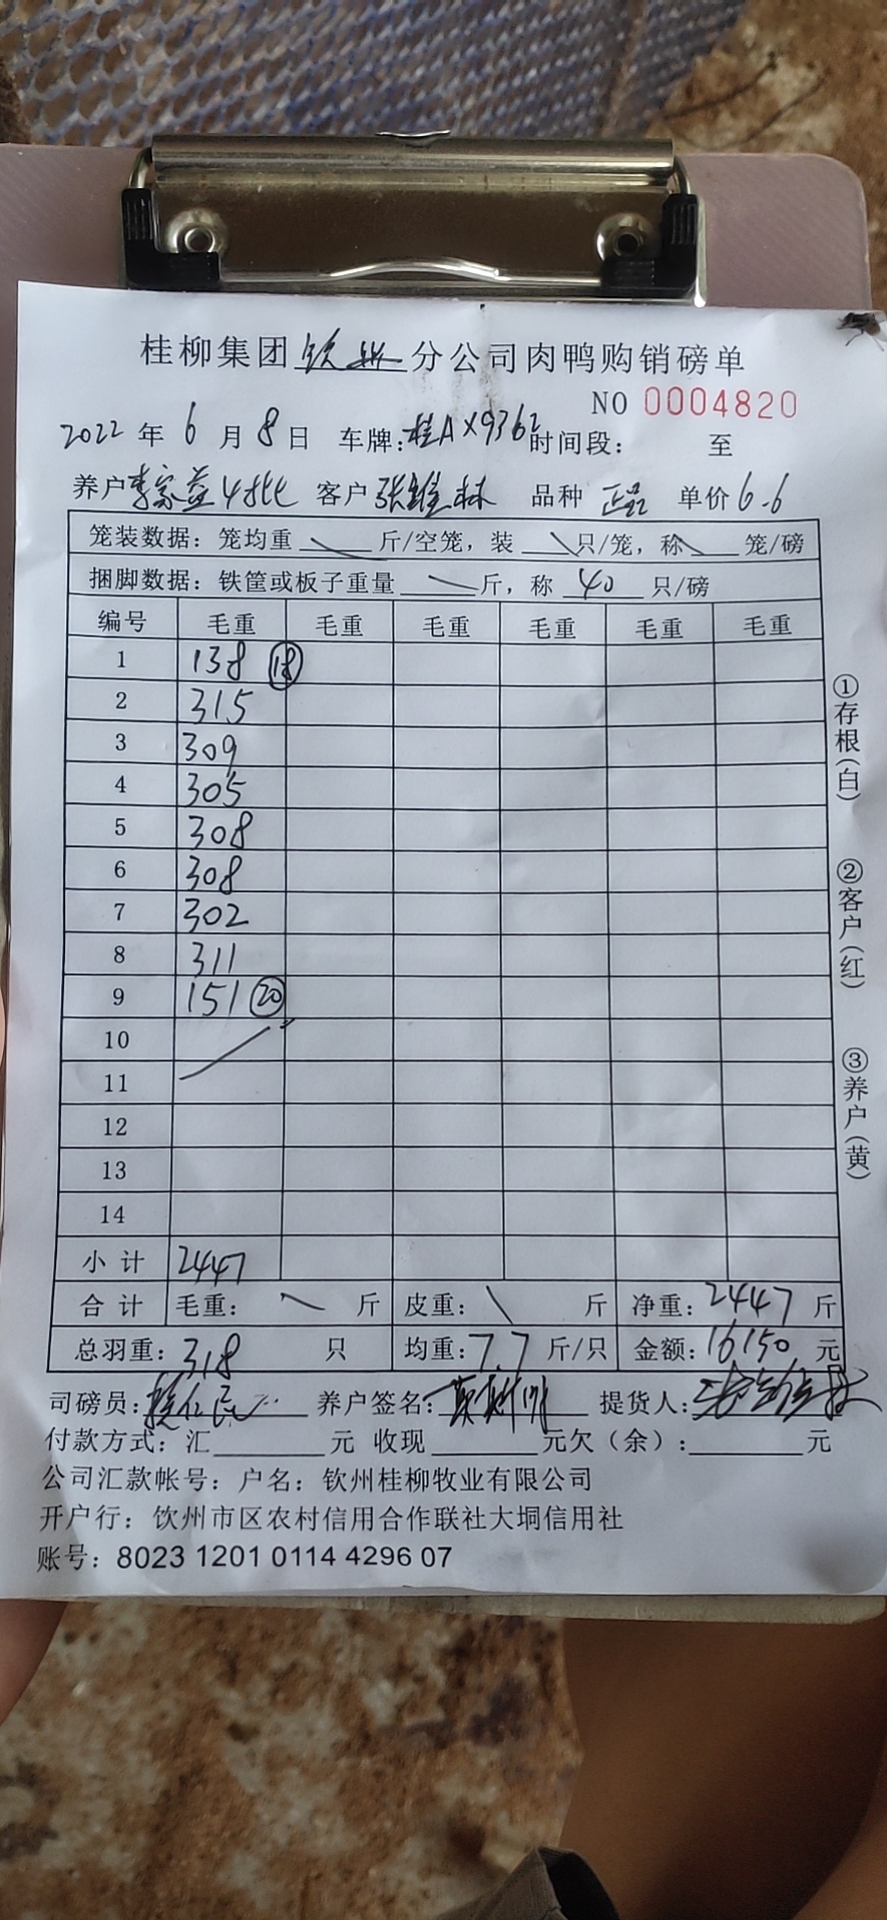 桂柳集团钦州分公司肉鸭购销磅单
NO 0004820
2022年6月8日 车牌:桂AX9362 时间段: 至
养户李家益4批 客户张维林 品种 单价6.6
笼装数据: 笼均重 斤/空笼, 装 只/笼, 称 笼/磅
捆脚数据: 铁筐或板子重量 斤, 称 40 只/磅
编号 毛重 毛重 毛重 毛重 毛重 毛重
1 138 ⑱
2 315
3 309
4 305
5 308
6 308
7 302
8 311
9 151 ⑳
10
11
12
13
14
小计 2447
合计 毛重: 斤 皮重: 斤 净重: 2447 斤
总羽重: 318 只 均重: 7.7 斤/只 金额: 16150 元
司磅员: 养户签名: 提货人:
付款方式: 汇 元 收现 元欠（余）: 元
公司汇款帐号: 户名: 钦州桂柳牧业有限公司
开户行: 钦州市区农村信用合作联社大垌信用社
账号: 8023 1201 0114 4296 07
①存根(白)
②客户(红)
③养户(黄)